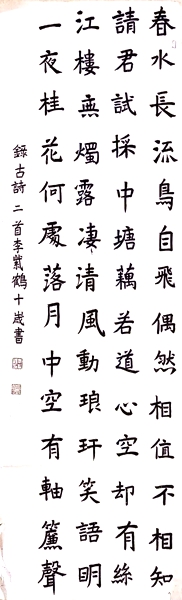 春水長流鳥自飛偶然相值不相知
請君試採中塘藕若道心空却有絲
江樓無燭露凄清風動琅玕笑語明
一夜桂花何處落月中空有軸簾聲
錄古詩二首李紫鶴十歲書